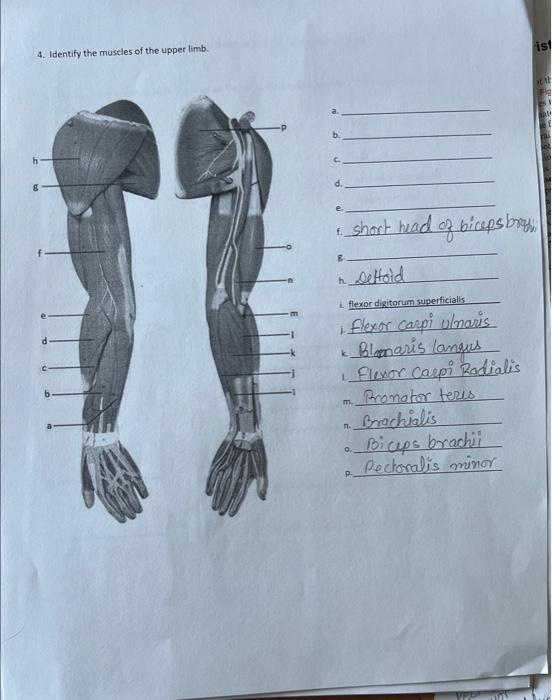 4. Identify the muscles of the upper limb.
ist
h
g
f
e
d
c
b
a
p
o
n
m
l
k
j
i
a.
b.
c.
d.
e.
f. short head of biceps
g.
h. Deltoid
i. flexor digitorum superficialis
j. flexor carpi ulnaris
k. Plamaris langus
l. Flexor Carpi Radialis
m. Pronator teres
n. Brachialis
o. Biceps brachii
p. Pectoralis minor